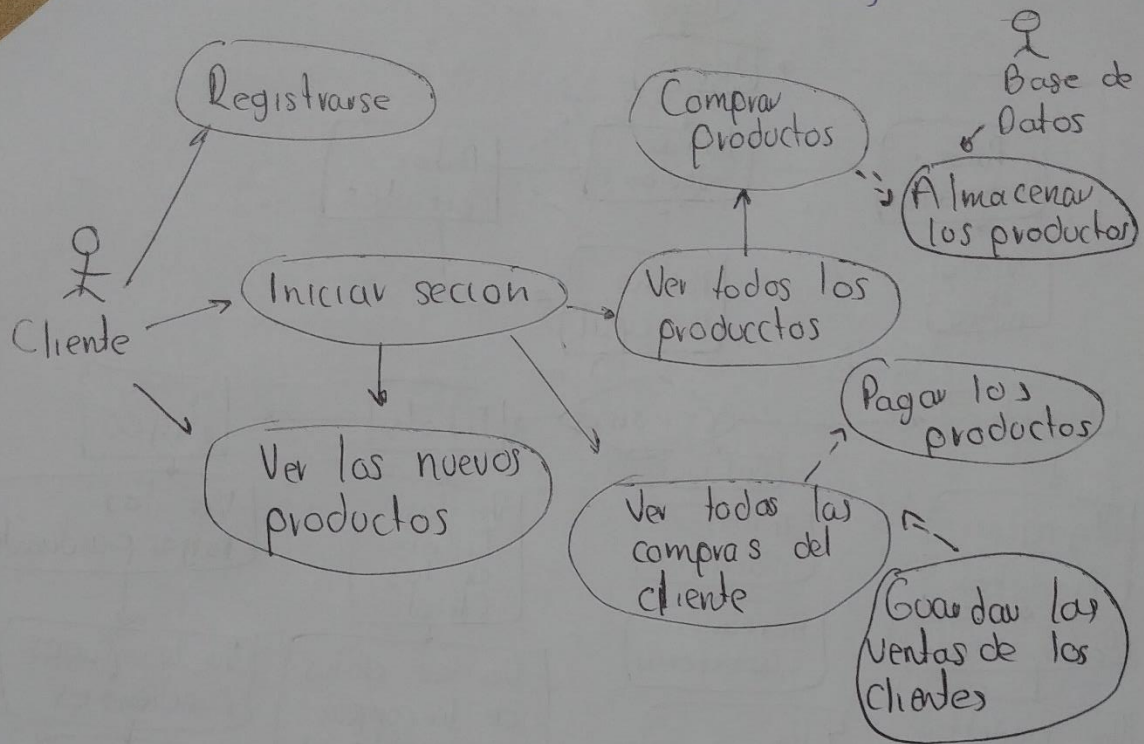 Registrarse
Comprar
productos
Base de
Datos
Almacenar
los productos
Cliente
Iniciar seccion
Ver todos los
producctos
Ver los nuevos
productos
Pagar los
productos
Ver todas las
compras del
cliente
Guardar las
ventas de los
clientes